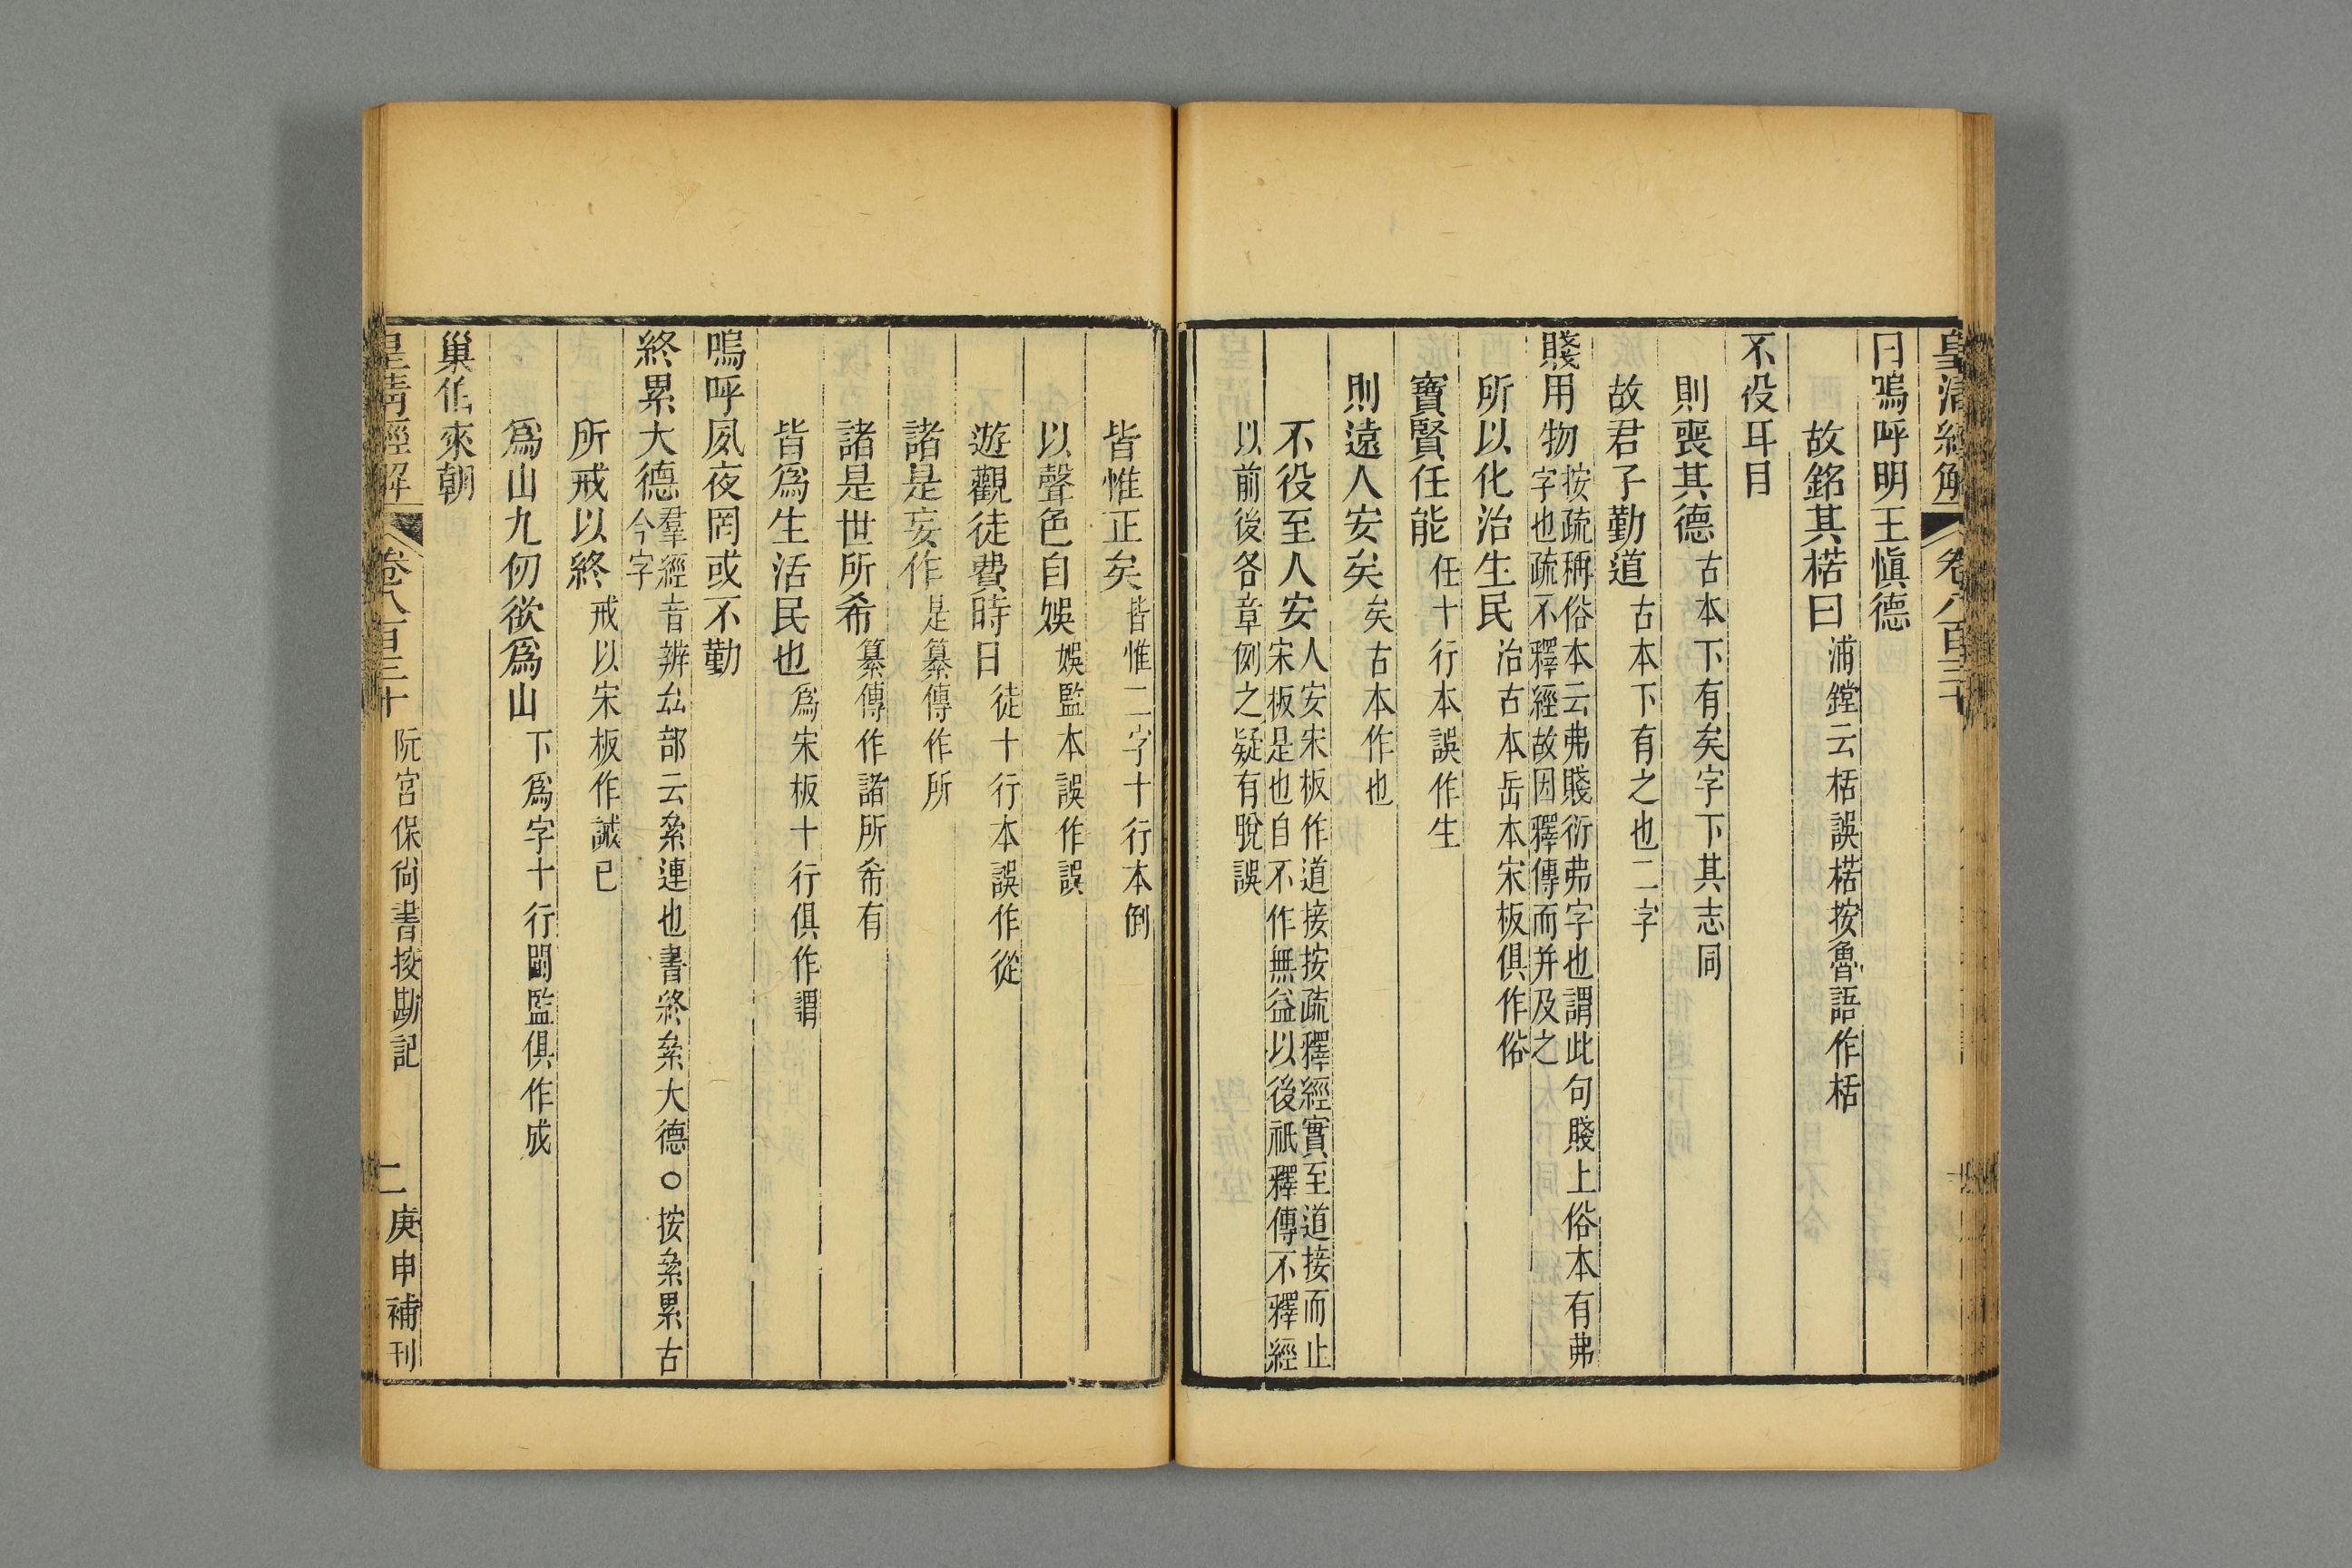 皇清經解 卷八百三十
曰嗚呼明王愼德
故銘其楛曰浦鏜云栝誤楛按魯語作栝
不役耳目
則喪其德古本下有矣字下其志同
故君子勤道古本下有之也二字
賤用物按疏稱俗本云弗賤衍弗字也謂此句賤上俗本有弗字也疏不釋經故因釋傳而幷及之
所以化治生民治古本岳本宋板俱作俗
寶賢任能任十行本誤作生
則遠人安矣矣古本作也
不役至人安人安宋板作道接按疏釋經實至道接而止宋板是也自不作無益以後祇釋傳不釋經
以前後各章例之疑有脫誤
皆惟正矣皆惟二字十行本倒
以聲色自娛娛監本誤作誤
遊觀徒費時日徒十行本誤作從
諸是妄作是纂傳作所
諸是世所希纂傳作諸所希有
皆爲生活民也爲宋板十行俱作謂
嗚呼夙夜罔或不勤
終累大德羣經音辨厽部云絫連也書終絫大德○按絫累古今字
所戒以終戒以宋板作誡已
爲山九仞欲爲山下爲字十行閩監俱作成
巢伯來朝
皇淸經解 卷八百三十 阮宮保尙書挍勘記 二 庚申補刊